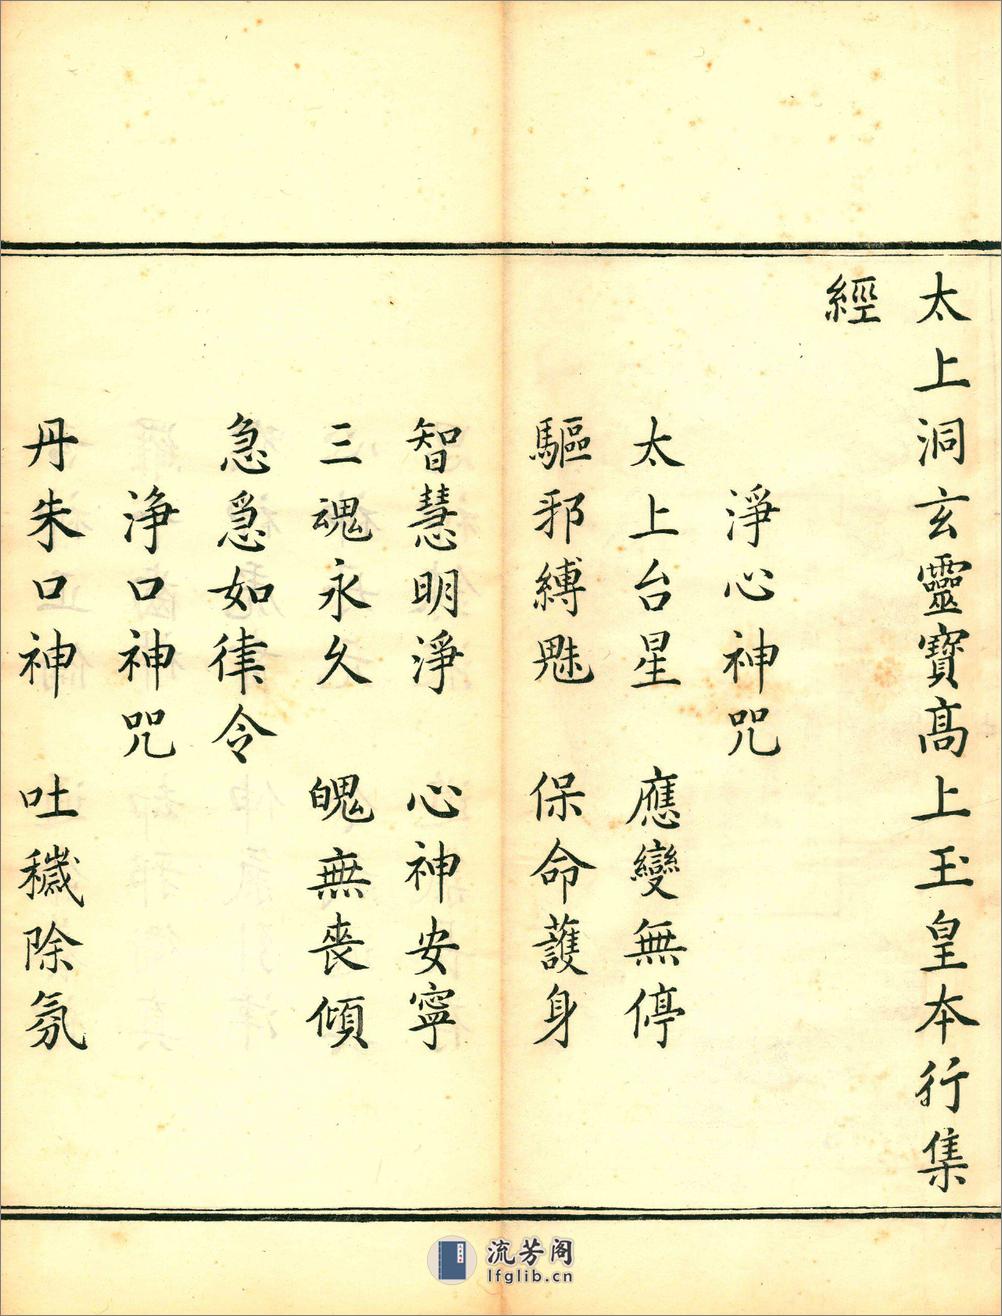 太上洞玄靈寶高上玉皇本行集
經
淨心神咒
太上台星　應變無停
驅邪縛魅　保命護身
智慧明淨　心神安寧
三魂永久　魄無喪傾
急急如律令
淨口神咒
丹朱口神　吐穢除氛
流芳阁
lfglib.cn